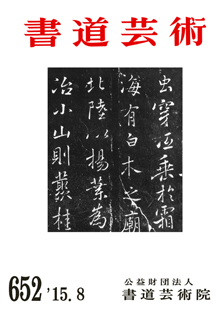 書道芸術
虫穿低垂於霜
海有白木之廟
北陸以楊葉為
冶小山則叢桂
652 '15.8
公益財団法人
書道芸術院